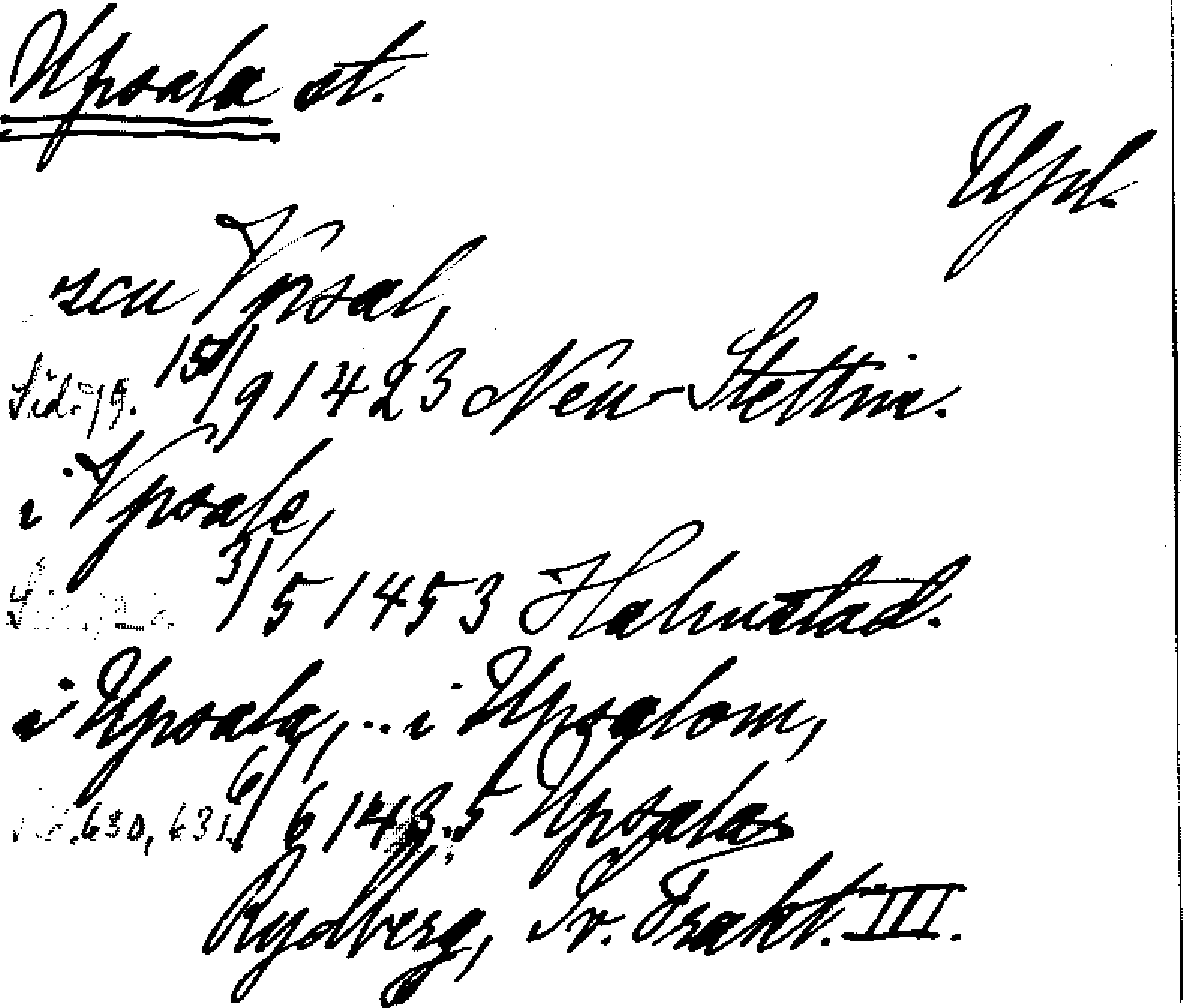 Upsala st.
Upl.
zcu Vpsal,
Sid. 79. 15/9 1423 Neu-Stettin.
i Vpsale,
3/5 1453 Halmstad.
i Upsala, .. i Upsalom,
630, 631. 6/6 1435 Upsala
Rydberg, Sv. Trakt. III.